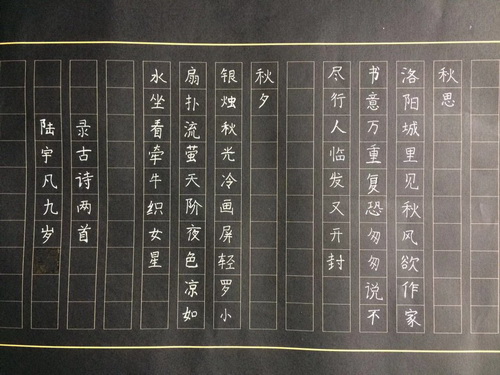 秋思
洛阳城里见秋风欲作家
书意万重复恐匆匆说不
尽行人临发又开封
秋夕
银烛秋光冷画屏轻罗小
扇扑流萤天阶夜色凉如
水坐看牵牛织女星
录古诗两首
陆宇凡九岁